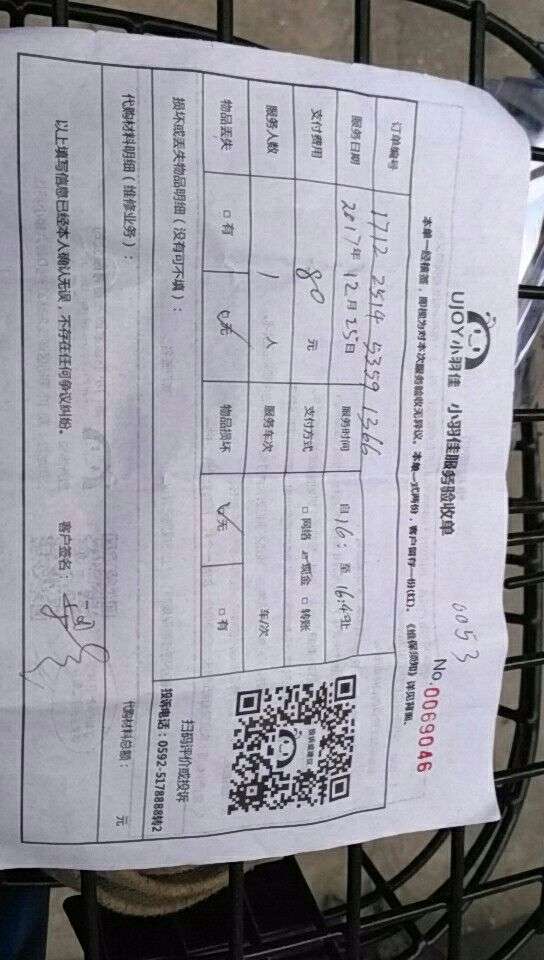 UJOY小羽佳 小羽佳服务验收单
0053
No.0069046
本单一经横签，即视为对本次服务验收无异议。本单一式两份，客户留存一份(红)。《维保须知》详见背面。
订单编号 1712 2514 5359 1366
服务日期 2017年12月25日 服务时间 自16: 至16:49止
支付费用 80 元 支付方式 □网络 现金 □转账
服务人数 1 人 服务车次 车/次
物品丢失 □有 无 物品损坏 无 □有
损坏或丢失物品明细（没有可不填）：
投诉或建议
扫码评价或投诉
投诉电话：0592-5178888转2
代购材料明细（维修业务）：
代购材料总额： 元
以上填写信息已经本人确认无误，不存在任何争议纠纷。 客户签名：